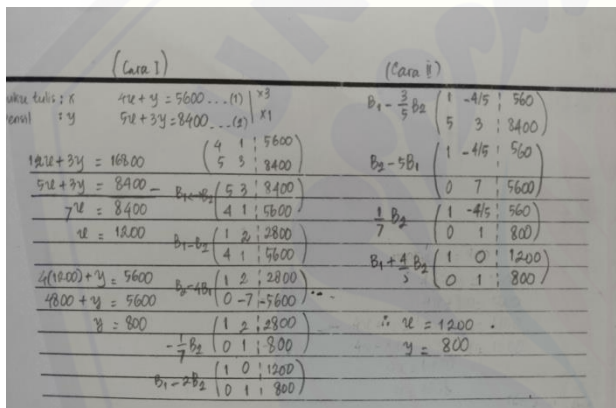 (Cara I)
tulis : x 4x + y = 5600 ... (1) | x3
: y 5x + 3y = 8400 ... (2) | x1
12x + 3y = 16800
5x + 3y = 8400 -
7x = 8400
x = 1200
4(1200) + y = 5600
4800 + y = 5600
y = 800
( 4 1 ¦ 5600
5 3 ¦ 8400 )
B1 <-> B2 ( 5 3 ¦ 8400
4 1 ¦ 5600 )
B1 - B2 ( 1 2 ¦ 2800
4 1 ¦ 5600 )
B2 - 4B1 ( 1 2 ¦ 2800
0 -7 ¦ -5600 ) ...
-1/7 B2 ( 1 2 ¦ 2800
0 1 ¦ 800 )
B1 - 2B2 ( 1 0 ¦ 1200
0 1 ¦ 800 )
(Cara ii)
B1 - 3/5 B2 ( 1 -4/5 ¦ 560
5 3 ¦ 8400 )
B2 - 5B1 ( 1 -4/5 ¦ 560
0 7 ¦ 5600 )
1/7 B2 ( 1 -4/5 ¦ 560
0 1 ¦ 800 )
B1 + 4/5 B2 ( 1 0 ¦ 1200
0 1 ¦ 800 )
∴ x = 1200 .
y = 800